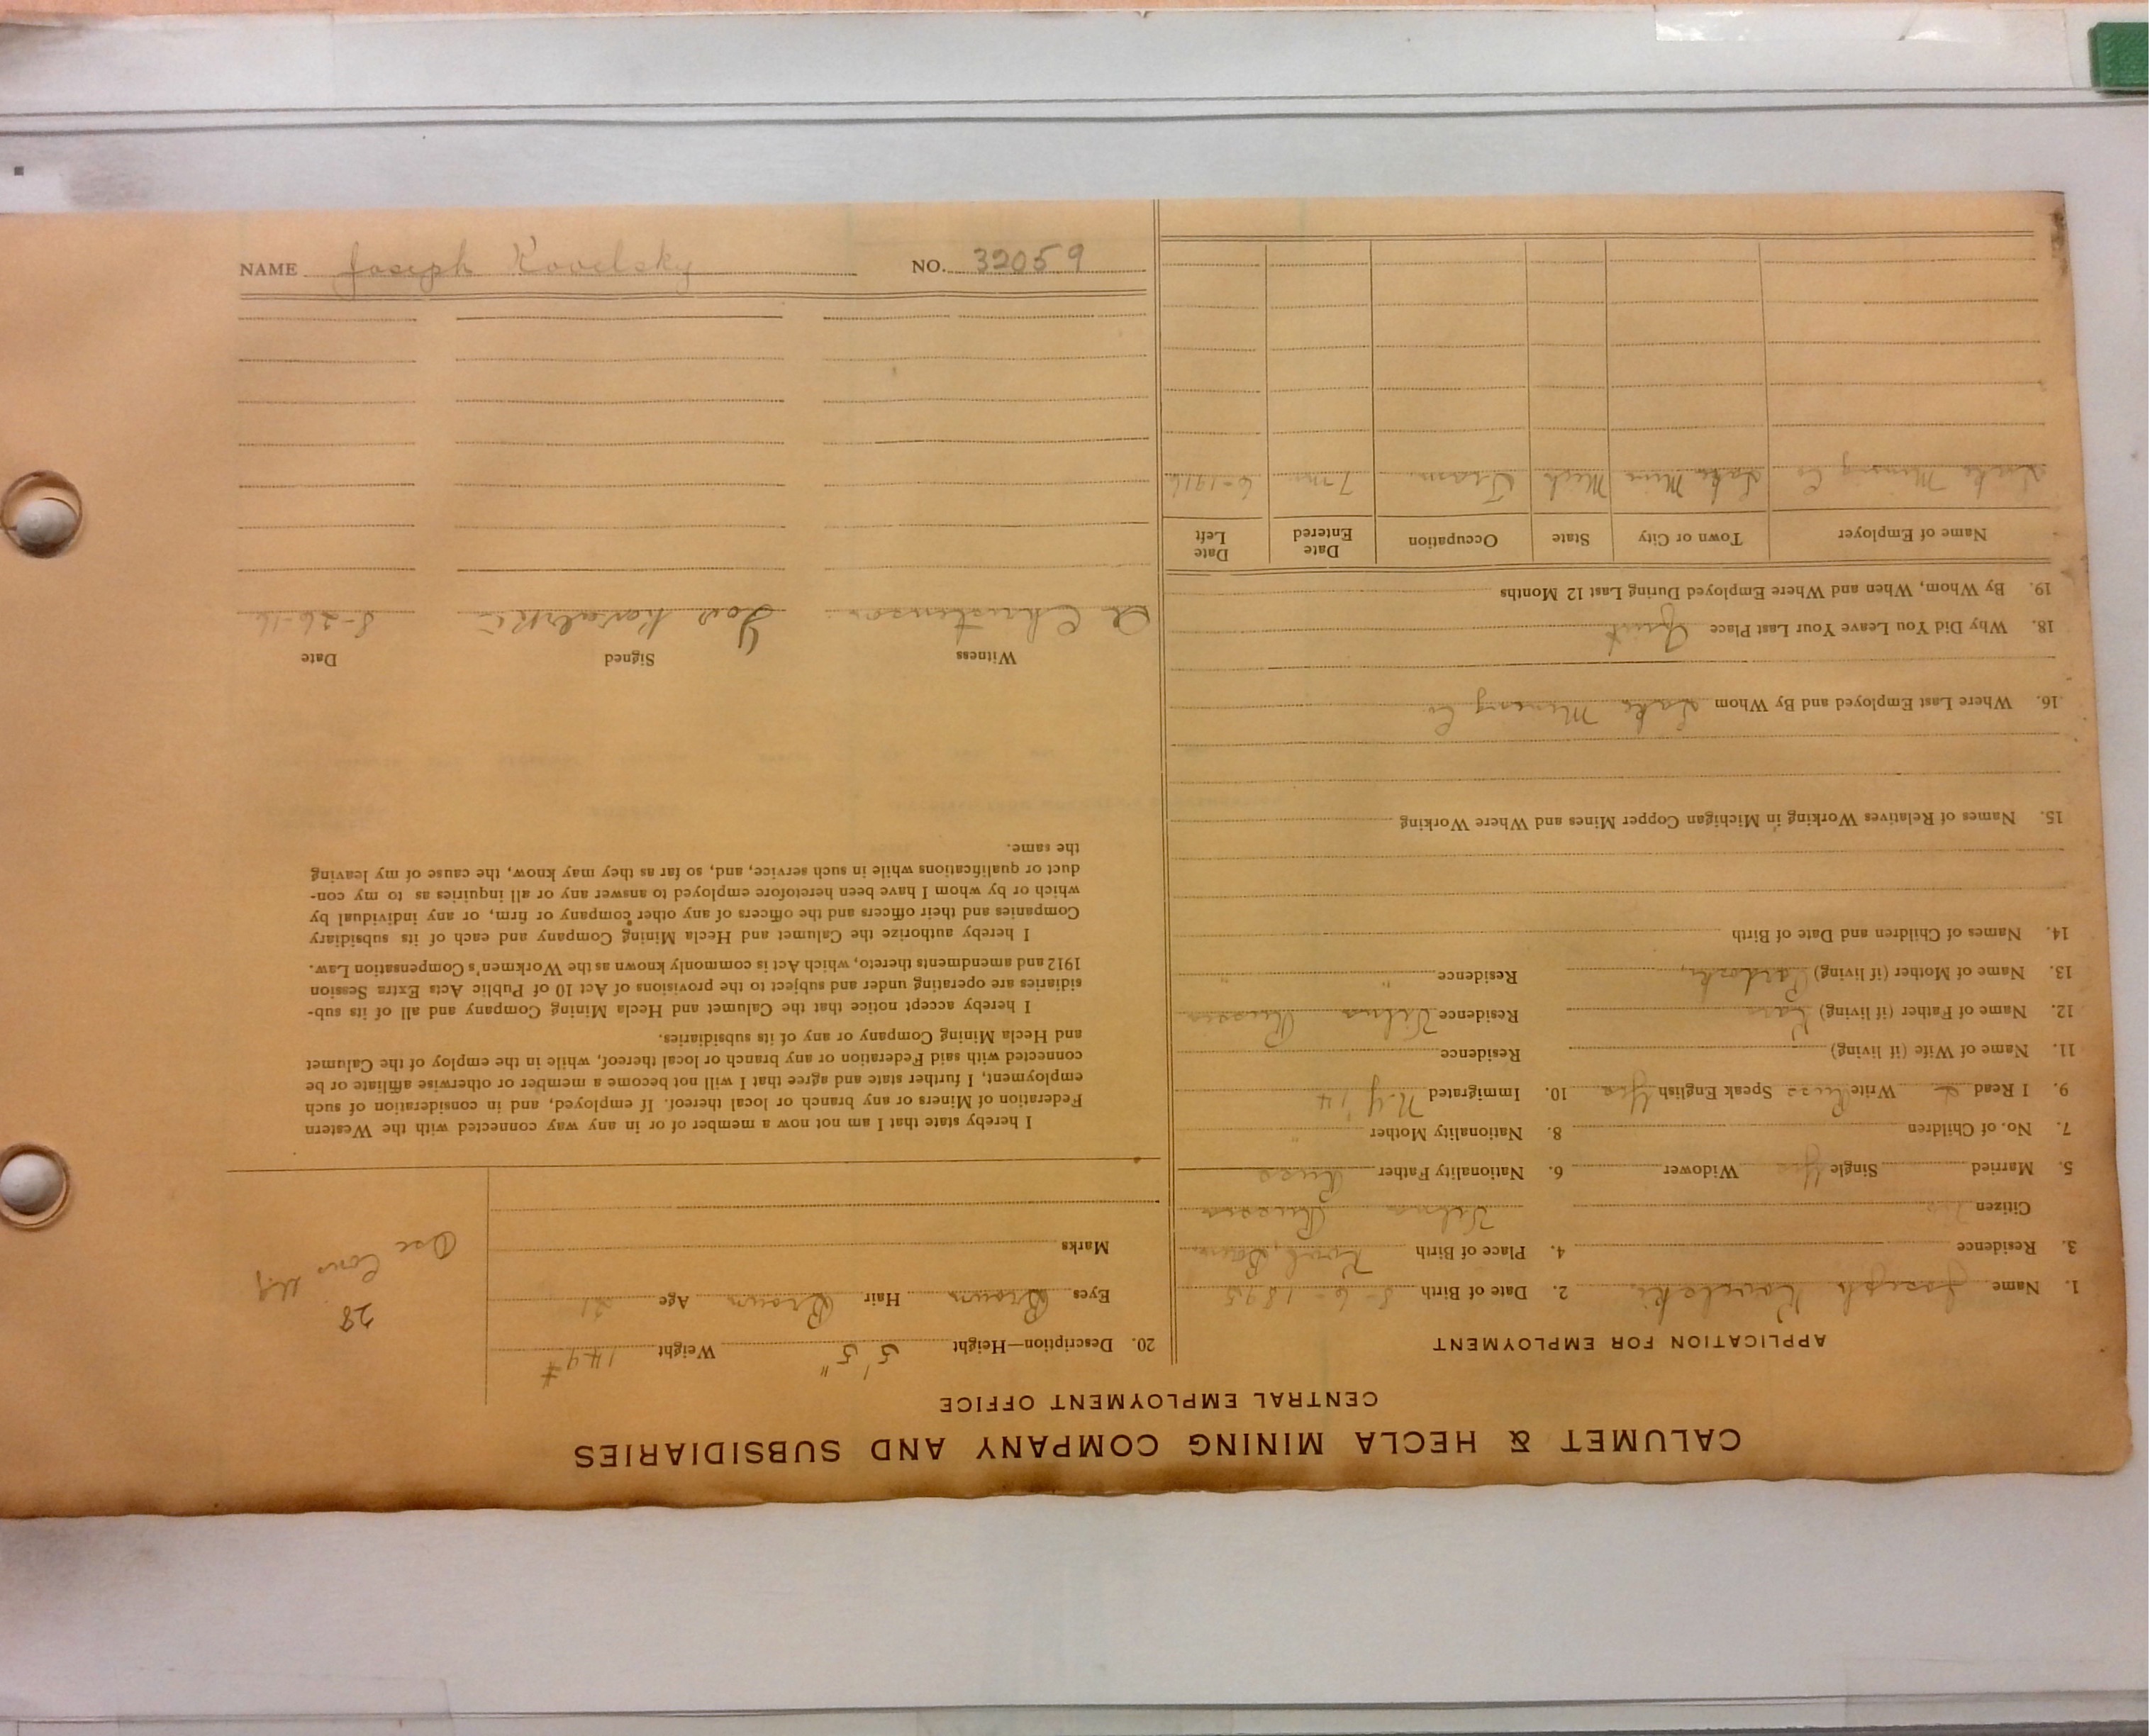 NAME Joseph Kovelsky NO. 32059
CALUMET & HECLA MINING COMPANY AND SUBSIDIARIES
CENTRAL EMPLOYMENT OFFICE
APPLICATION FOR EMPLOYMENT
1. Name Joseph 2. Date of Birth 8-6-1895
3. Residence 4. Place of Birth
Citizen Russia
5. Married Single Yes Widower 6. Nationality Father Russ
7. No. of Children 8. Nationality Mother "
9. I Read Write Russ Speak English Yes 10. Immigrated N.Y. 14
11. Name of Wife (if living) Residence
12. Name of Father (if living) Residence Vilna Russia
13. Name of Mother (if living) Residence " "
14. Names of Children and Date of Birth
15. Names of Relatives Working in Michigan Copper Mines and Where Working
16. Where Last Employed and By Whom Lake Mining Co
18. Why Did You Leave Your Last Place Quit
19. By Whom, When and Where Employed During Last 12 Months
Name of Employer Town or City State Occupation Date Entered Date Left
Lake Mining Co Lake Mine Mich Tram 7 mos 6-1916
20. Description—Height 5' 5" Weight 149 #
Eyes Brown Hair Brown Age 21
Marks
28
Osc Cons
I hereby state that I am not now a member of or in any way connected with the Western
Federation of Miners or any branch or local thereof. If employed, and in consideration of such
employment, I further state and agree that I will not become a member or otherwise affiliate or be
connected with said Federation or any branch or local thereof, while in the employ of the Calumet
and Hecla Mining Company or any of its subsidiaries.
I hereby accept notice that the Calumet and Hecla Mining Company and all of its sub-
sidiaries are operating under and subject to the provisions of Act 10 of Public Acts Extra Session
1912 and amendments thereto, which Act is commonly known as the Workmen's Compensation Law.
I hereby authorize the Calumet and Hecla Mining Company and each of its subsidiary
Companies and their officers and the officers of any other company or firm, or any individual by
which or by whom I have been heretofore employed to answer any or all inquiries as to my con-
duct or qualifications while in such service, and, so far as they may know, the cause of my leaving
the same.
Witness Signed Date
8-26-16